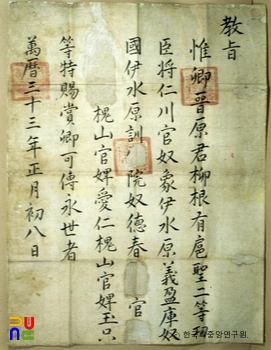 教旨
惟卿晋原君柳根有扈聖二等功
臣將仁川官奴象伊水原義盈庫奴
國伊水原訓 院奴德春 官
槐山官婢愛仁槐山官婢玉只
等特賜賞卿可傳永世者
萬曆三十三年正月初八日
한국 중앙연구원